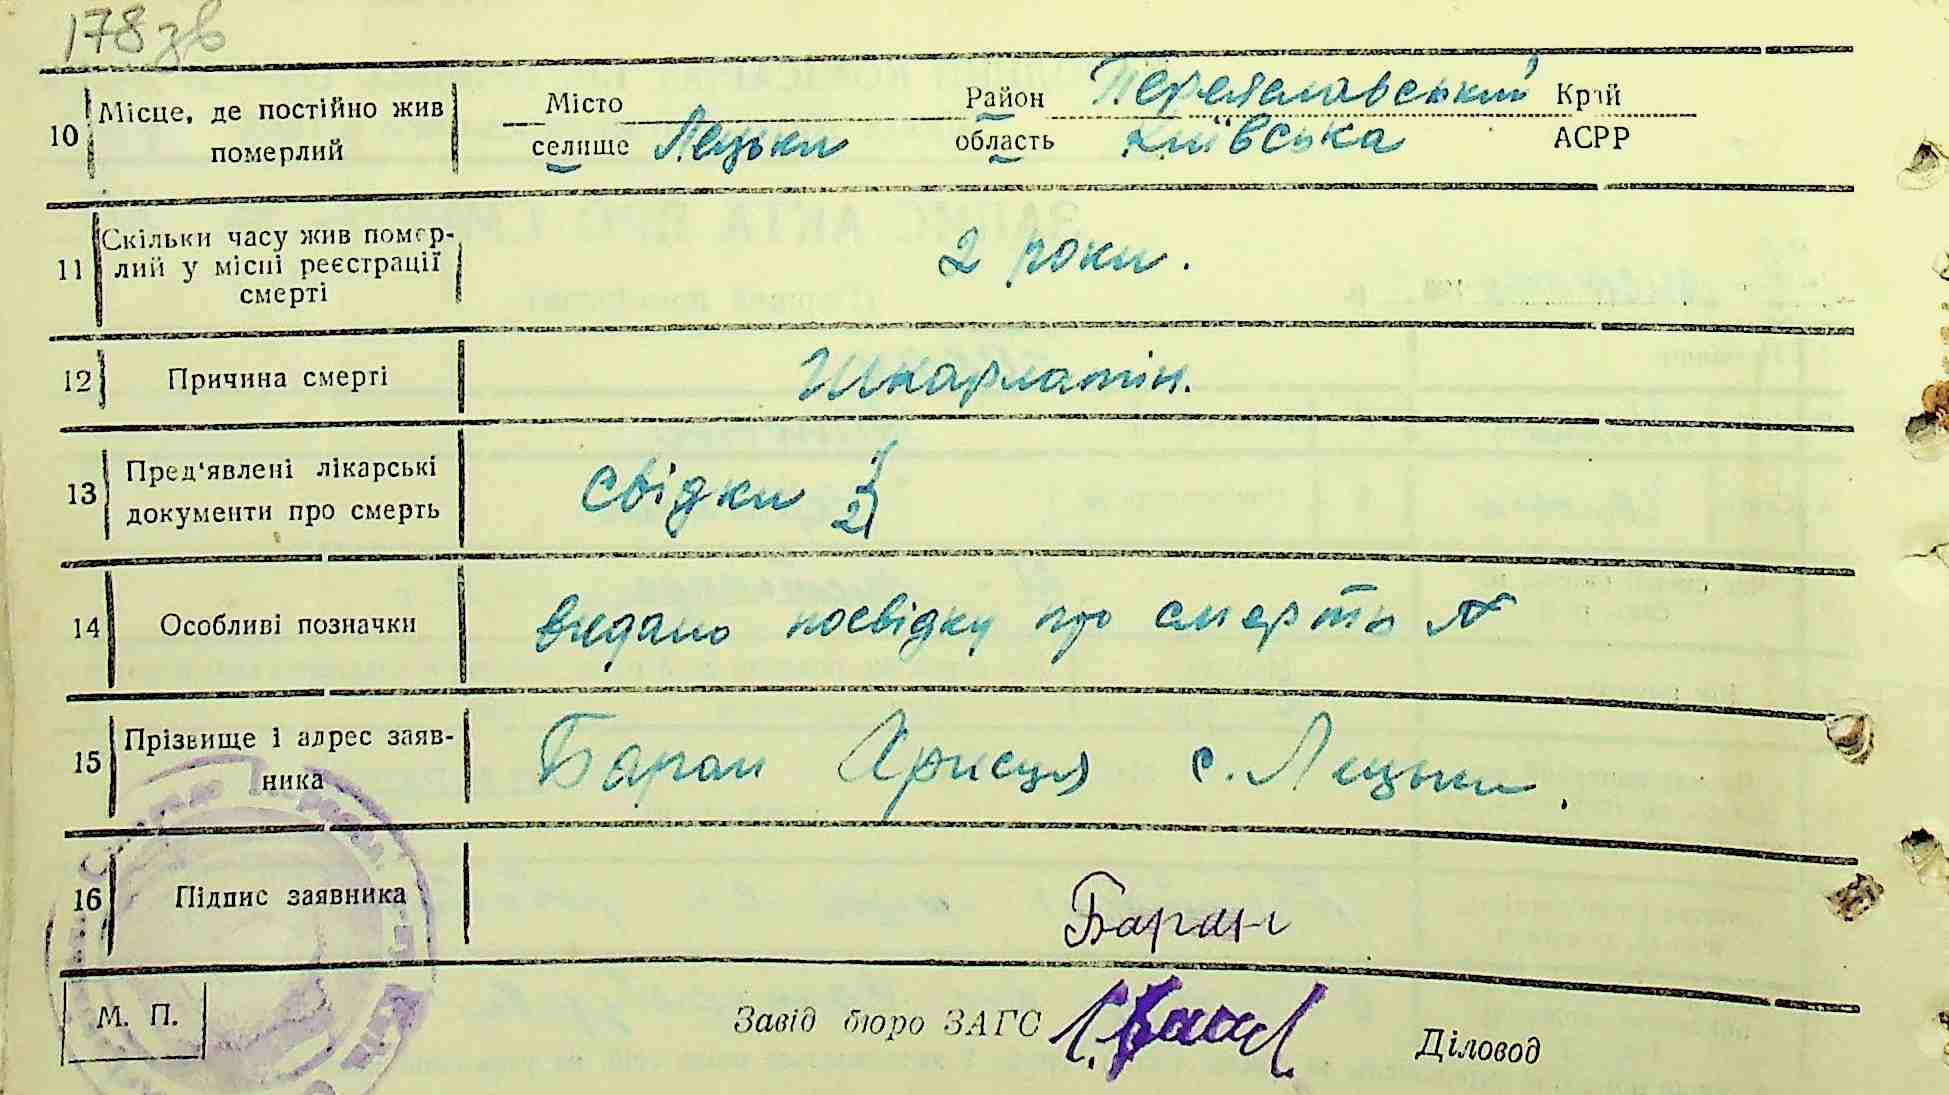 178 зв
10 Місце, де постійно жив померлий
Місто Район Переяславський Край
селище Лецьки область Київська АСРР
11 Скільки часу жив помер-
лий у місці реєстрації
смерті
2 роки.
12 Причина смерті Шкарлатін.
13 Пред'явлені лікарські
документи про смерть
свідки 1
2
14 Особливі позначки видано посвідку про смерть №
15 Прізвище і адрес заяв-
ника
Баран Христя с. Лецьки.
16 Підпис заявника Баран
М. П. Завід бюро ЗАГС Діловод